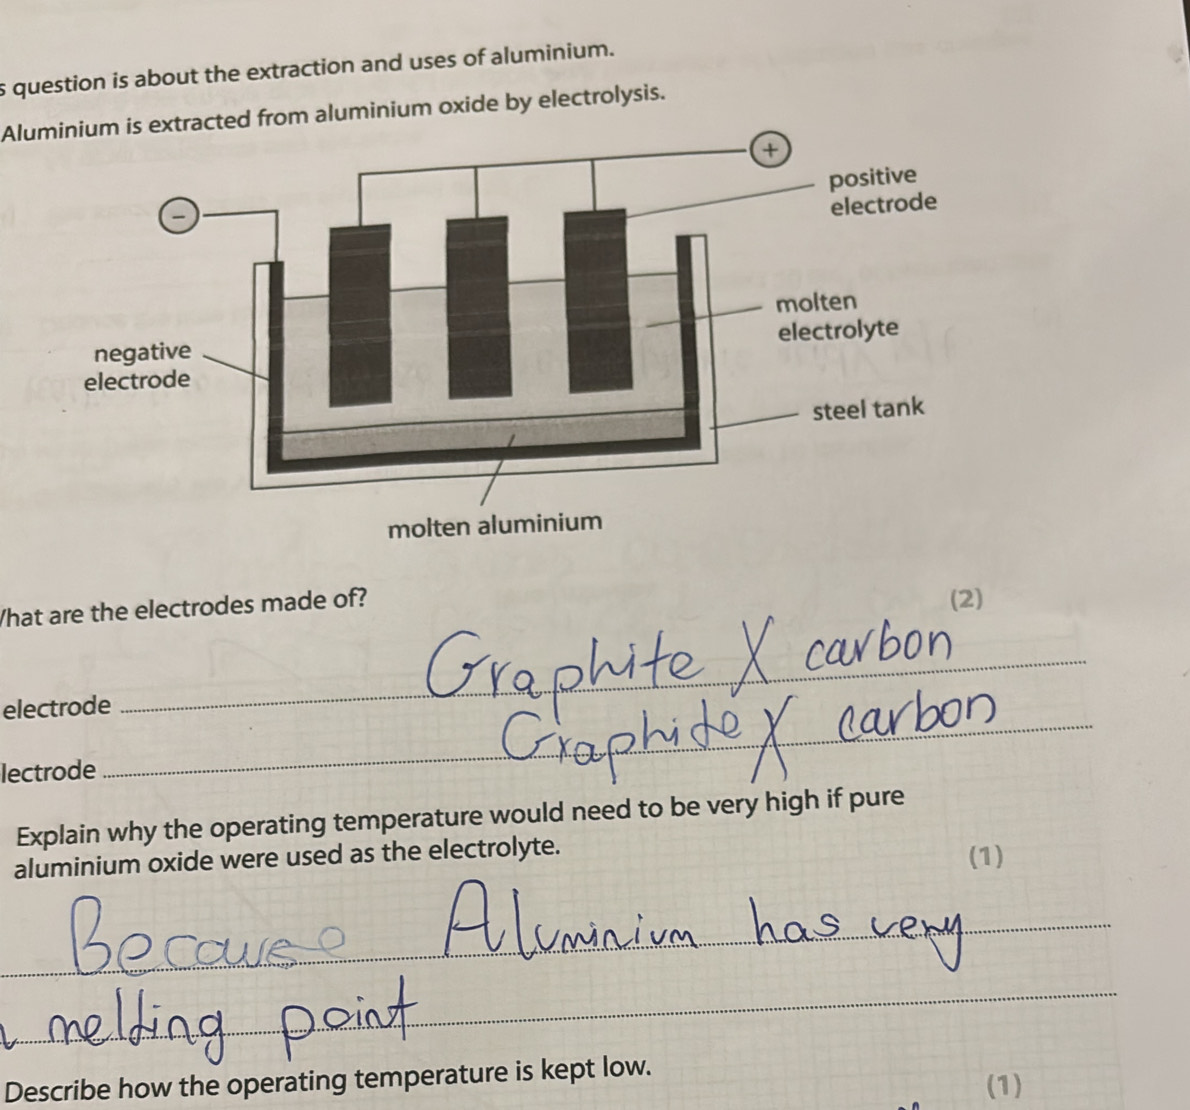 s question is about the extraction and uses of aluminium.
Aluminium is extracted from aluminium oxide by electrolysis.
+
positive
electrode
−
molten
electrolyte
negative
electrode
steel tank
molten aluminium
hat are the electrodes made of?
(2)
electrode Graphite X carbon
lectrode Graphite X carbon
Explain why the operating temperature would need to be very high if pure
aluminium oxide were used as the electrolyte.
(1)
Because Aluminium has very
melting point
Describe how the operating temperature is kept low.
(1)